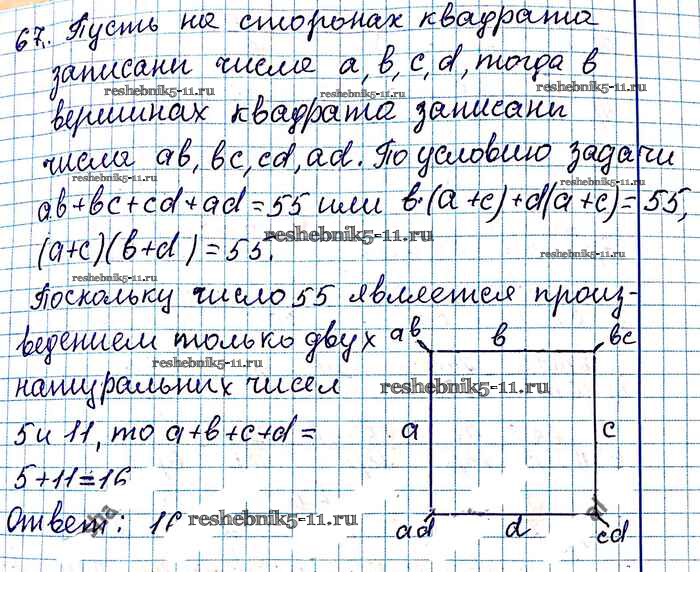 67. Пусть на сторонах квадрата
записани числа a, b, c, d, тогда в
reshebnik5-11.ru
reshebnik5-11.ru
вершинах квадрата записани
числа ab, bc, cd, ad. По условию задачи
reshebnik5-11.ru
reshebnik5-11.ru
ab+bc+cd+ad=55 или b·(a+c)+d(a+c)=55,
reshebnik5-11.ru
(a+c)(b+d)=55.
reshebnik5-11.ru
reshebnik5-11.ru
Поскольку число 55 является произ-
ведением только двух
reshebnik5-11.ru
натуральних чисел
5 и 11, то a+b+c+d=
5+11=16
Ответ: 16
reshebnik5-11.ru
ab b bc
reshebnik5-11.ru
a c
ad d cd